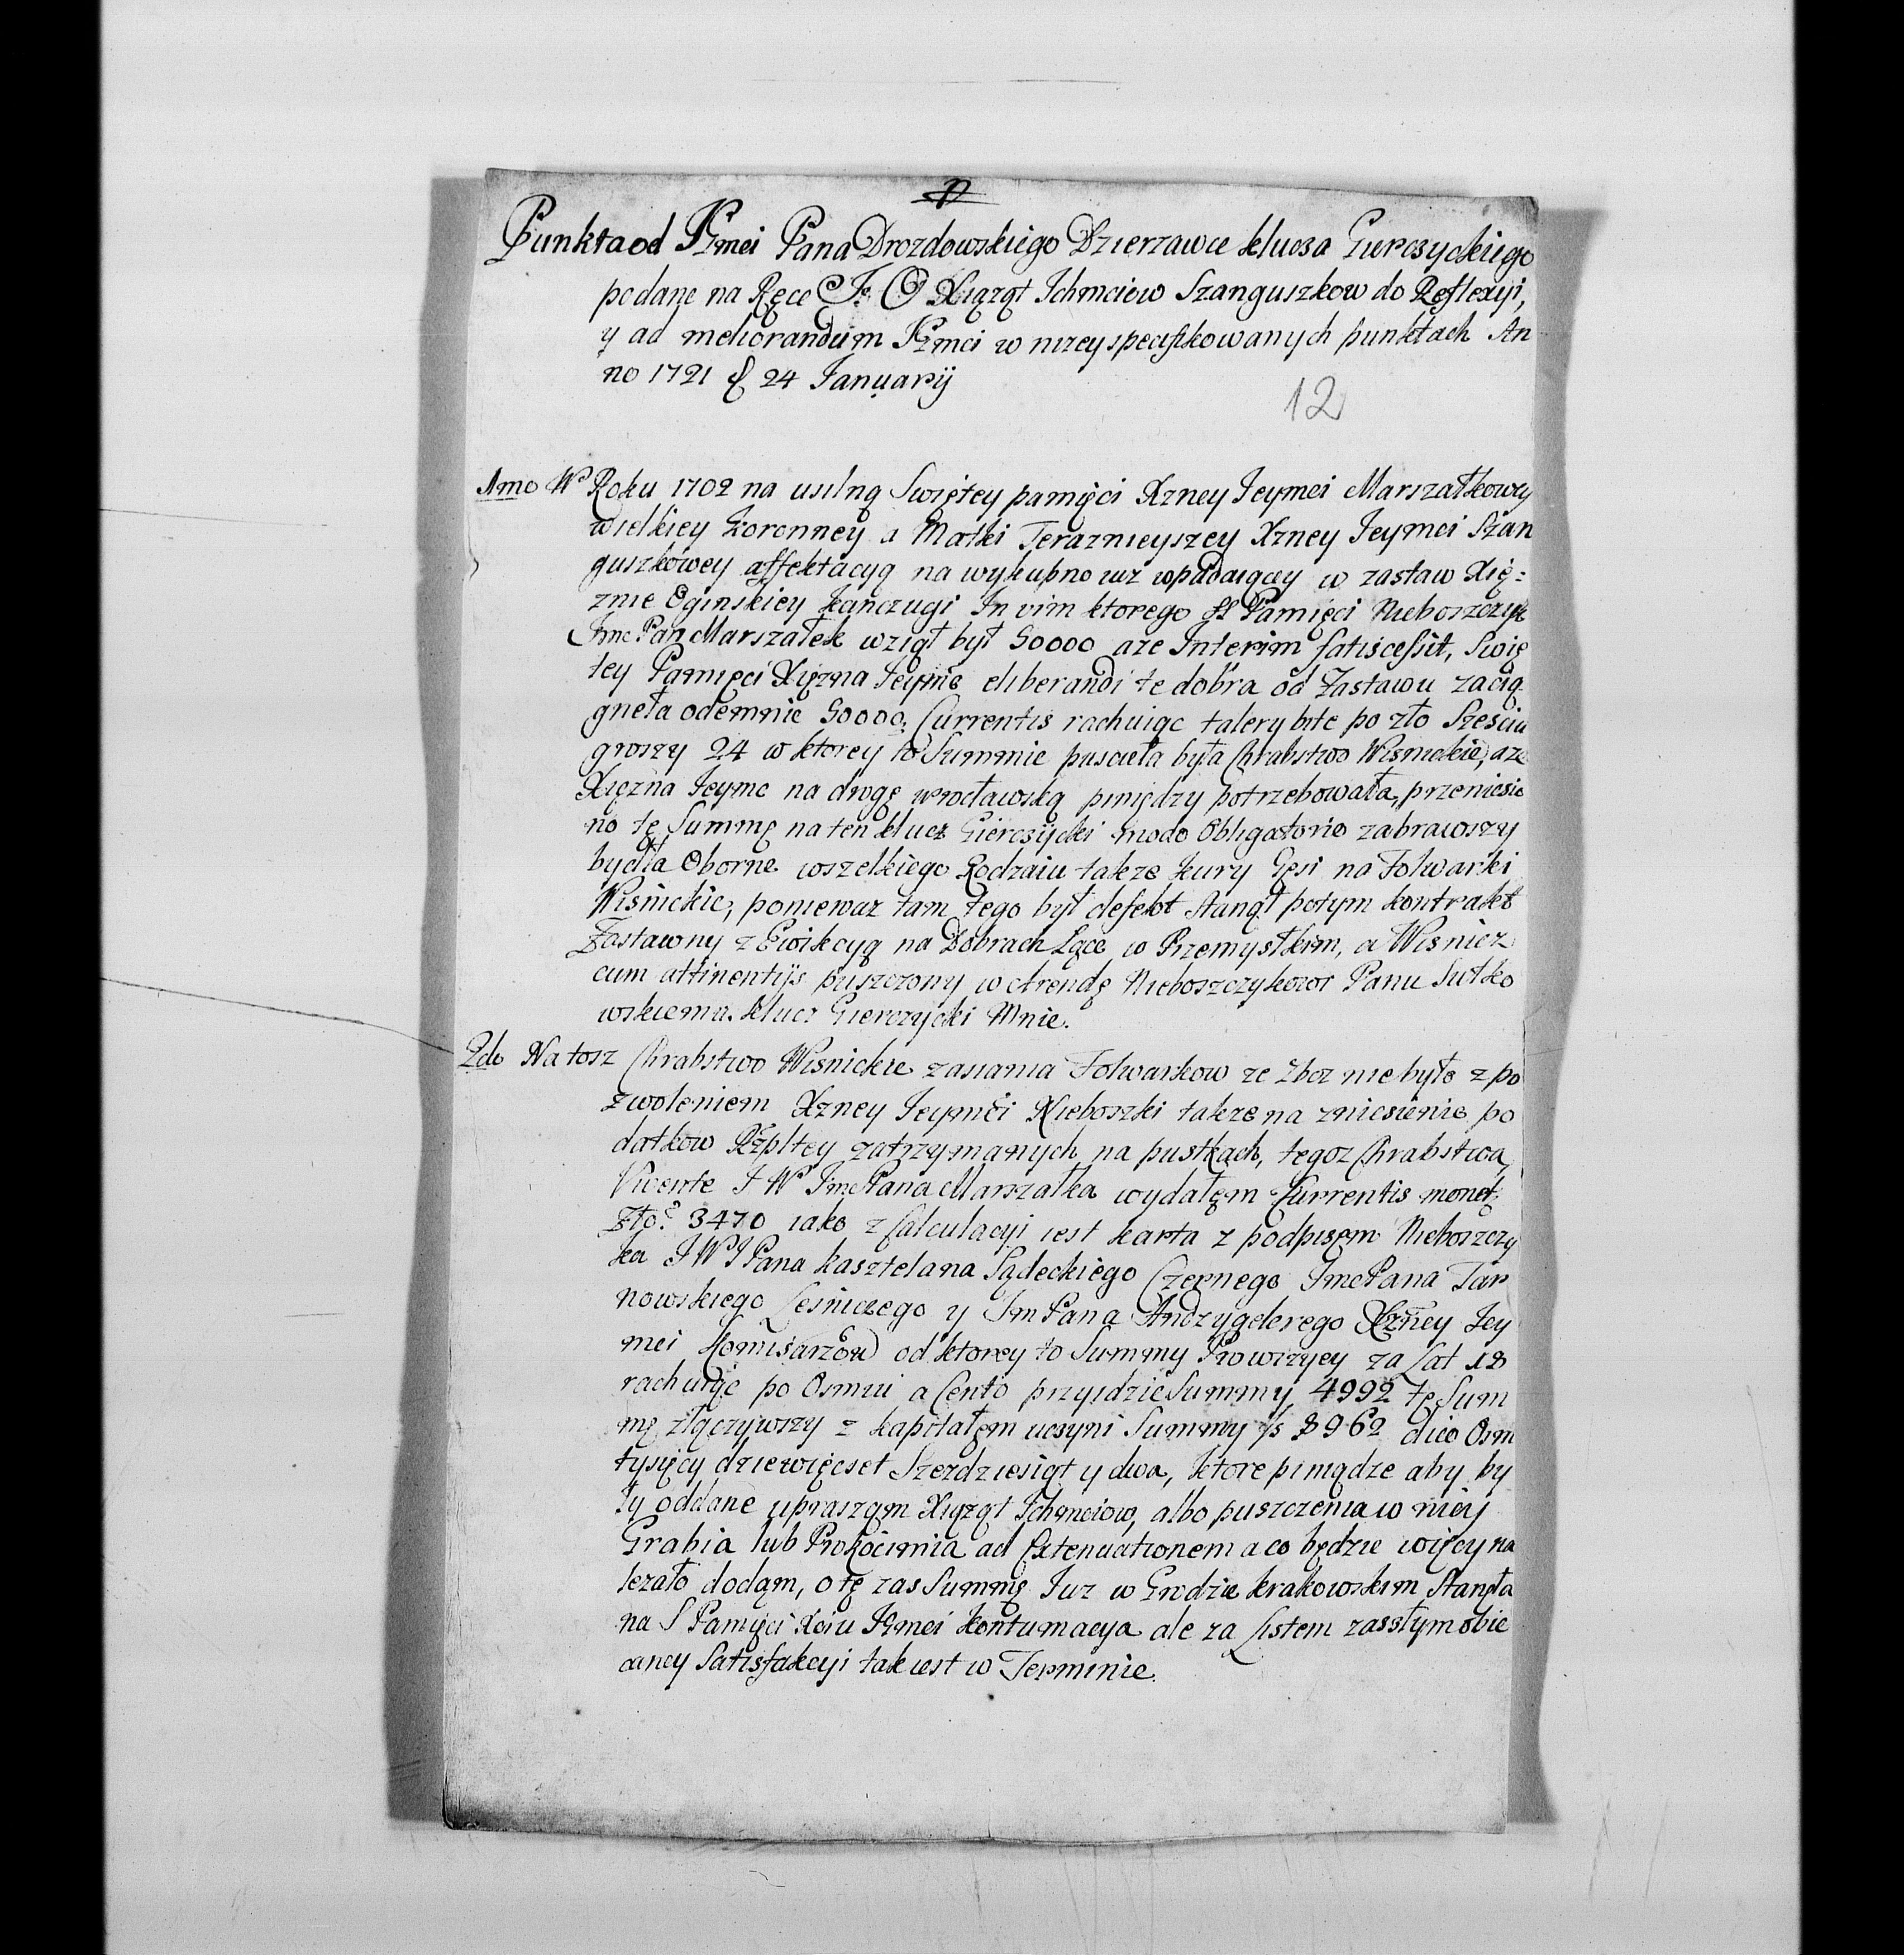 Punkta od JKmci Pana Drozdowskiego Dzierzawce klucza Gierczyckiego
podane na Ręce J. O Xiąząt Ichmciow Szanguszkow do Reflexyi,
y ad meliorandum JKmci w nizey specifikowanych punktach An
no 1721 d 24 Januarij
12
1mo W Roku 1702 na usilną Swiętey pamięci Xzney Jeymci Marszałkowey
wielkiey koronney a Matki Teraznieyszey Xzney Jeymci Szan
guszkowey affektacyą na wykupno iuz wpadaiącey w zastaw Xię=
znie Oginskiey Kanczugi In vim ktorego S Pamięci Nieboszczyk
Jmc Pan Marszałek wziął był 50000 aze Interim satiscessit, Swię
tey Pamięci Xięzna Jeymc eliberandi te dobra od Zastawu zacią
gneła odemnie 50000. Currentis rachuiąc talery bite po zło Szesciu
groszy 24 w ktorey to Summie puscieła była Chrabstwo Wisnickie, aze
Xięzna Jeymc na drogę wrocławską piniędzy potrzebowała, przeniesio
no tę Summę na ten klucz Gierczycki modo Obligatorio zabrawszy
bydła Oborne wszelkiego Rodzaiu takze kury Gęsi na Folwarki
Wisnickie, poniewaz tam tego był defekt stanął potym kontrakt
Zastawny z Ewikcyą na Dobrach Łące w Przemyskim, a Wisnicz
cum attinentijs puszczony w Arendę Nieboszczykowi Panu Sutko
wskiemu. klucz Gierczycki Mnie.
2do Na tosz Chrabstwo Wisnickie zasiania Folwarkow ze zboz niebyło z po
zwoleniem Xzney Jeymci Nieboszki takze na zniesienie po
datkow Rzpltey zatrzymanych na pustkach, tegoz Chrabstwa
Vivente J W Jmc Pana Marszałka wydałęm Currentis monet.
Zło. 3470 iako z Calculacyi iest karta z podpisem Nieboszczy
ka J W J Pana kasztelana Sądeckiego Czernego Jmc Pana Tar
nowskiego Lesniczego y Jm Pana Xzney Jey
mci Komisarzow od ktorey to Summy Prowizyey za Lat 18
rachuiąc po Osmiu a Cento przyidzie Summy 4992 tę Sum
mę złączywszy z kapitałęm uczyni Summy 8962 dico Osm
tysięcy dziewięcset Szezdziesiąt y dwa, ktore piniądze aby by
ły oddane upraszam Xiąząt Ichmciow, albo puszczenia w niey
Grabia lub Prokocimia ad Extenuationem a co będzie więcy na
lezało dodąm, o tę zas Summę Juz w Grodzie krakowskim Stanęła
na S Pamięci Xciu Jmci kontumacya ale za Listem zasłym obie
caney Satisfakcyi tak iest w Terminie.